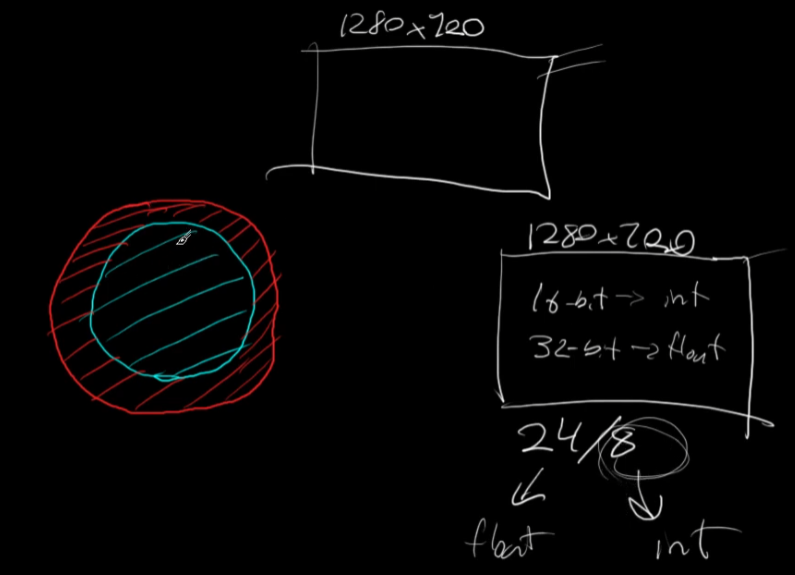 1280x720
1280x720
16-bit → int
32-bit → float
24/8
float int